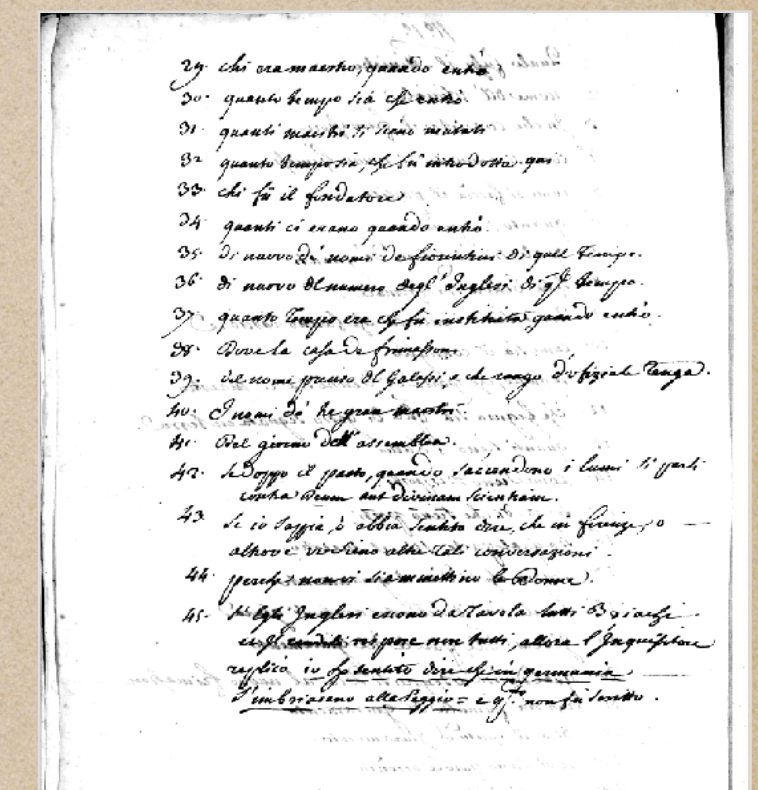 29. chi era maestro, quando entrò
30. quanto tempo sia che entrò
31. quanti maestri si siano mutati
32. quanto tempo sia, che fù introdotta qui
33. chi fù il fondatore
34. quanti ci erano quando entrò
35. di nuovo de' nomi de fiorentini di quell Tempo.
36. di nuovo del numero degl' Inglesi di q.to tempo.
37. quanto Tempo era che fù instituita quando entrò.
38. Dove la casa de
39. del nome preciso del e che rango d'ofiziale Tenga.
40. I nomi de' tre gran maestri.
41. Del giorno dell' assemblea.
42. Se doppo il pasto, quando s'accendono i lumi si parli
contra Deum aut divinam scientiam.
43. Se io sappia, ò abbia sentito dire, che in firenze, o
altrove vi siano altre Tali conversazioni.
44. perche non vi si amettino le Donne.
45. Se gli Inglesi escono da Tavola tutti Briachi
rispose non tutti, allora l'Inquisitore
replicò io ho sentito dire che in germania
s'imbriacano alla peggio = e q.to non fù scritto.